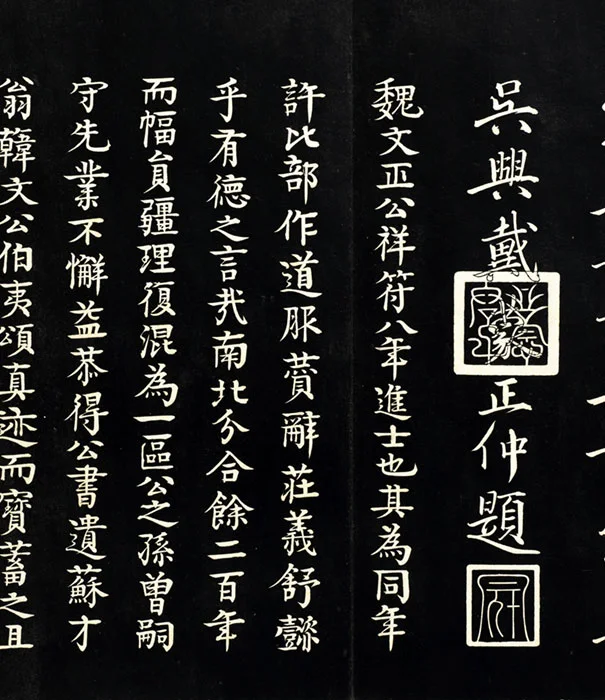 吳興戴
正仲題
魏文正公祥符八年進士也其為同年
許比部作道服賛辭莊義舒懿
乎有德之言我南北分合餘二百年
而幅員疆理復混為一區公之孫曾嗣
守先業不懈益恭得公書遺蘇才
翁韓文公伯夷頌真迹而寶蓄之且